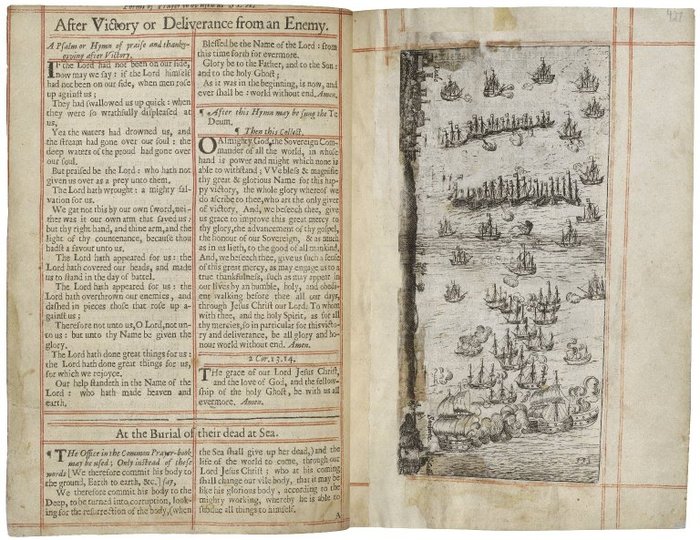 Forms of Prayer to be used at SEA.
After Victory or Deliverance from an Enemy.
A Psalm or Hymn of praise and thanks-
giving after Victory.
IF the Lord had not been on our side,
now may we say: if the Lord himself
had not been on our side, when men rose
up against us;
They had swallowed us up quick: when
they were so wrathfully displeased at
us.
Yea the waters had drowned us, and
the stream had gone over our soul: the
deep waters of the proud had gone over
our soul.
But praised be the Lord: who hath not
given us over as a prey unto them.
The Lord hath wrought: a mighty sal-
vation for us.
We gat not this by our own sword, nei-
ther was it our own arm that saved us:
but thy right hand, and thine arm, and the
light of thy countenance, because thou
hadst a favour unto us.
The Lord hath appeared for us: the
Lord hath covered our heads, and made
us to stand in the day of battel.
The Lord hath appeared for us: the
Lord hath overthrown our enemies, and
dashed in pieces those that rose up a-
gainst us;
Therefore not unto us, O Lord, not un-
to us: but unto thy Name be given the
glory.
The Lord hath done great things for us:
the Lord hath done great things for us,
for which we rejoyce.
Our help standeth in the Name of the
Lord: who hath made heaven and
earth.
Blessed be the Name of the Lord: from
this time forth for evermore.
Glory be to the Father, and to the Sun:
and to the holy Ghost;
As it was in the beginning, is now, and
ever shall be: world without end. Amen.
¶ After this Hymn may be sung the Te
Deum.
¶ Then this Collect.
O Almighty God, the Sovereign Com-
mander of all the world, in whose
hand is power and might which none is
able to withstand; VVe bless & magnifie
thy great & glorious Name for this hap-
py victory, the whole glory whereof we
do ascribe to thee, who art the only giver
of victory. And, we beseech thee, give
us grace to improve this great mercy to
thy glory, the advancement of thy gospel,
the honour of our Sovereign, & as much
as in us lieth, to the good of all mankind.
And, we beseech thee, give us such a sense
of this great mercy, as may engage us to a
true thankfulness, such as may appear in
our lives by an humble, holy, and obedi-
ent walking before thee all our days,
through Jesus Christ our Lord: To whom
with thee, and the holy Spirit, as for all
thy mercies, so in particular for this victo-
ry and deliverance, be all glory and ho-
nour world without end. Amen.
2 Cor. 13. 14.
THe grace of our Lord Jesus Christ,
and the love of God, and the fellow-
ship of the holy Ghost, be with us all
evermore. Amen.
At the Burial of their dead at Sea.
¶ THe Office in the Common Prayer-book
may be used; Only instead of these
words [We therefore commit his body to
the ground, Earth to earth, &c.] say,
We therefore commit his body to the
Deep, to be turned into corruption, look-
ing for the resurrection of the body, (when
the Sea shall give up her dead,) and the
life of the world to come, through our
Lord Jesus Christ; who at his coming
shall change our vile body, that it may be
like his glorious body, according to the
mighty working, whereby he is able to
subdue all things to himself.
A